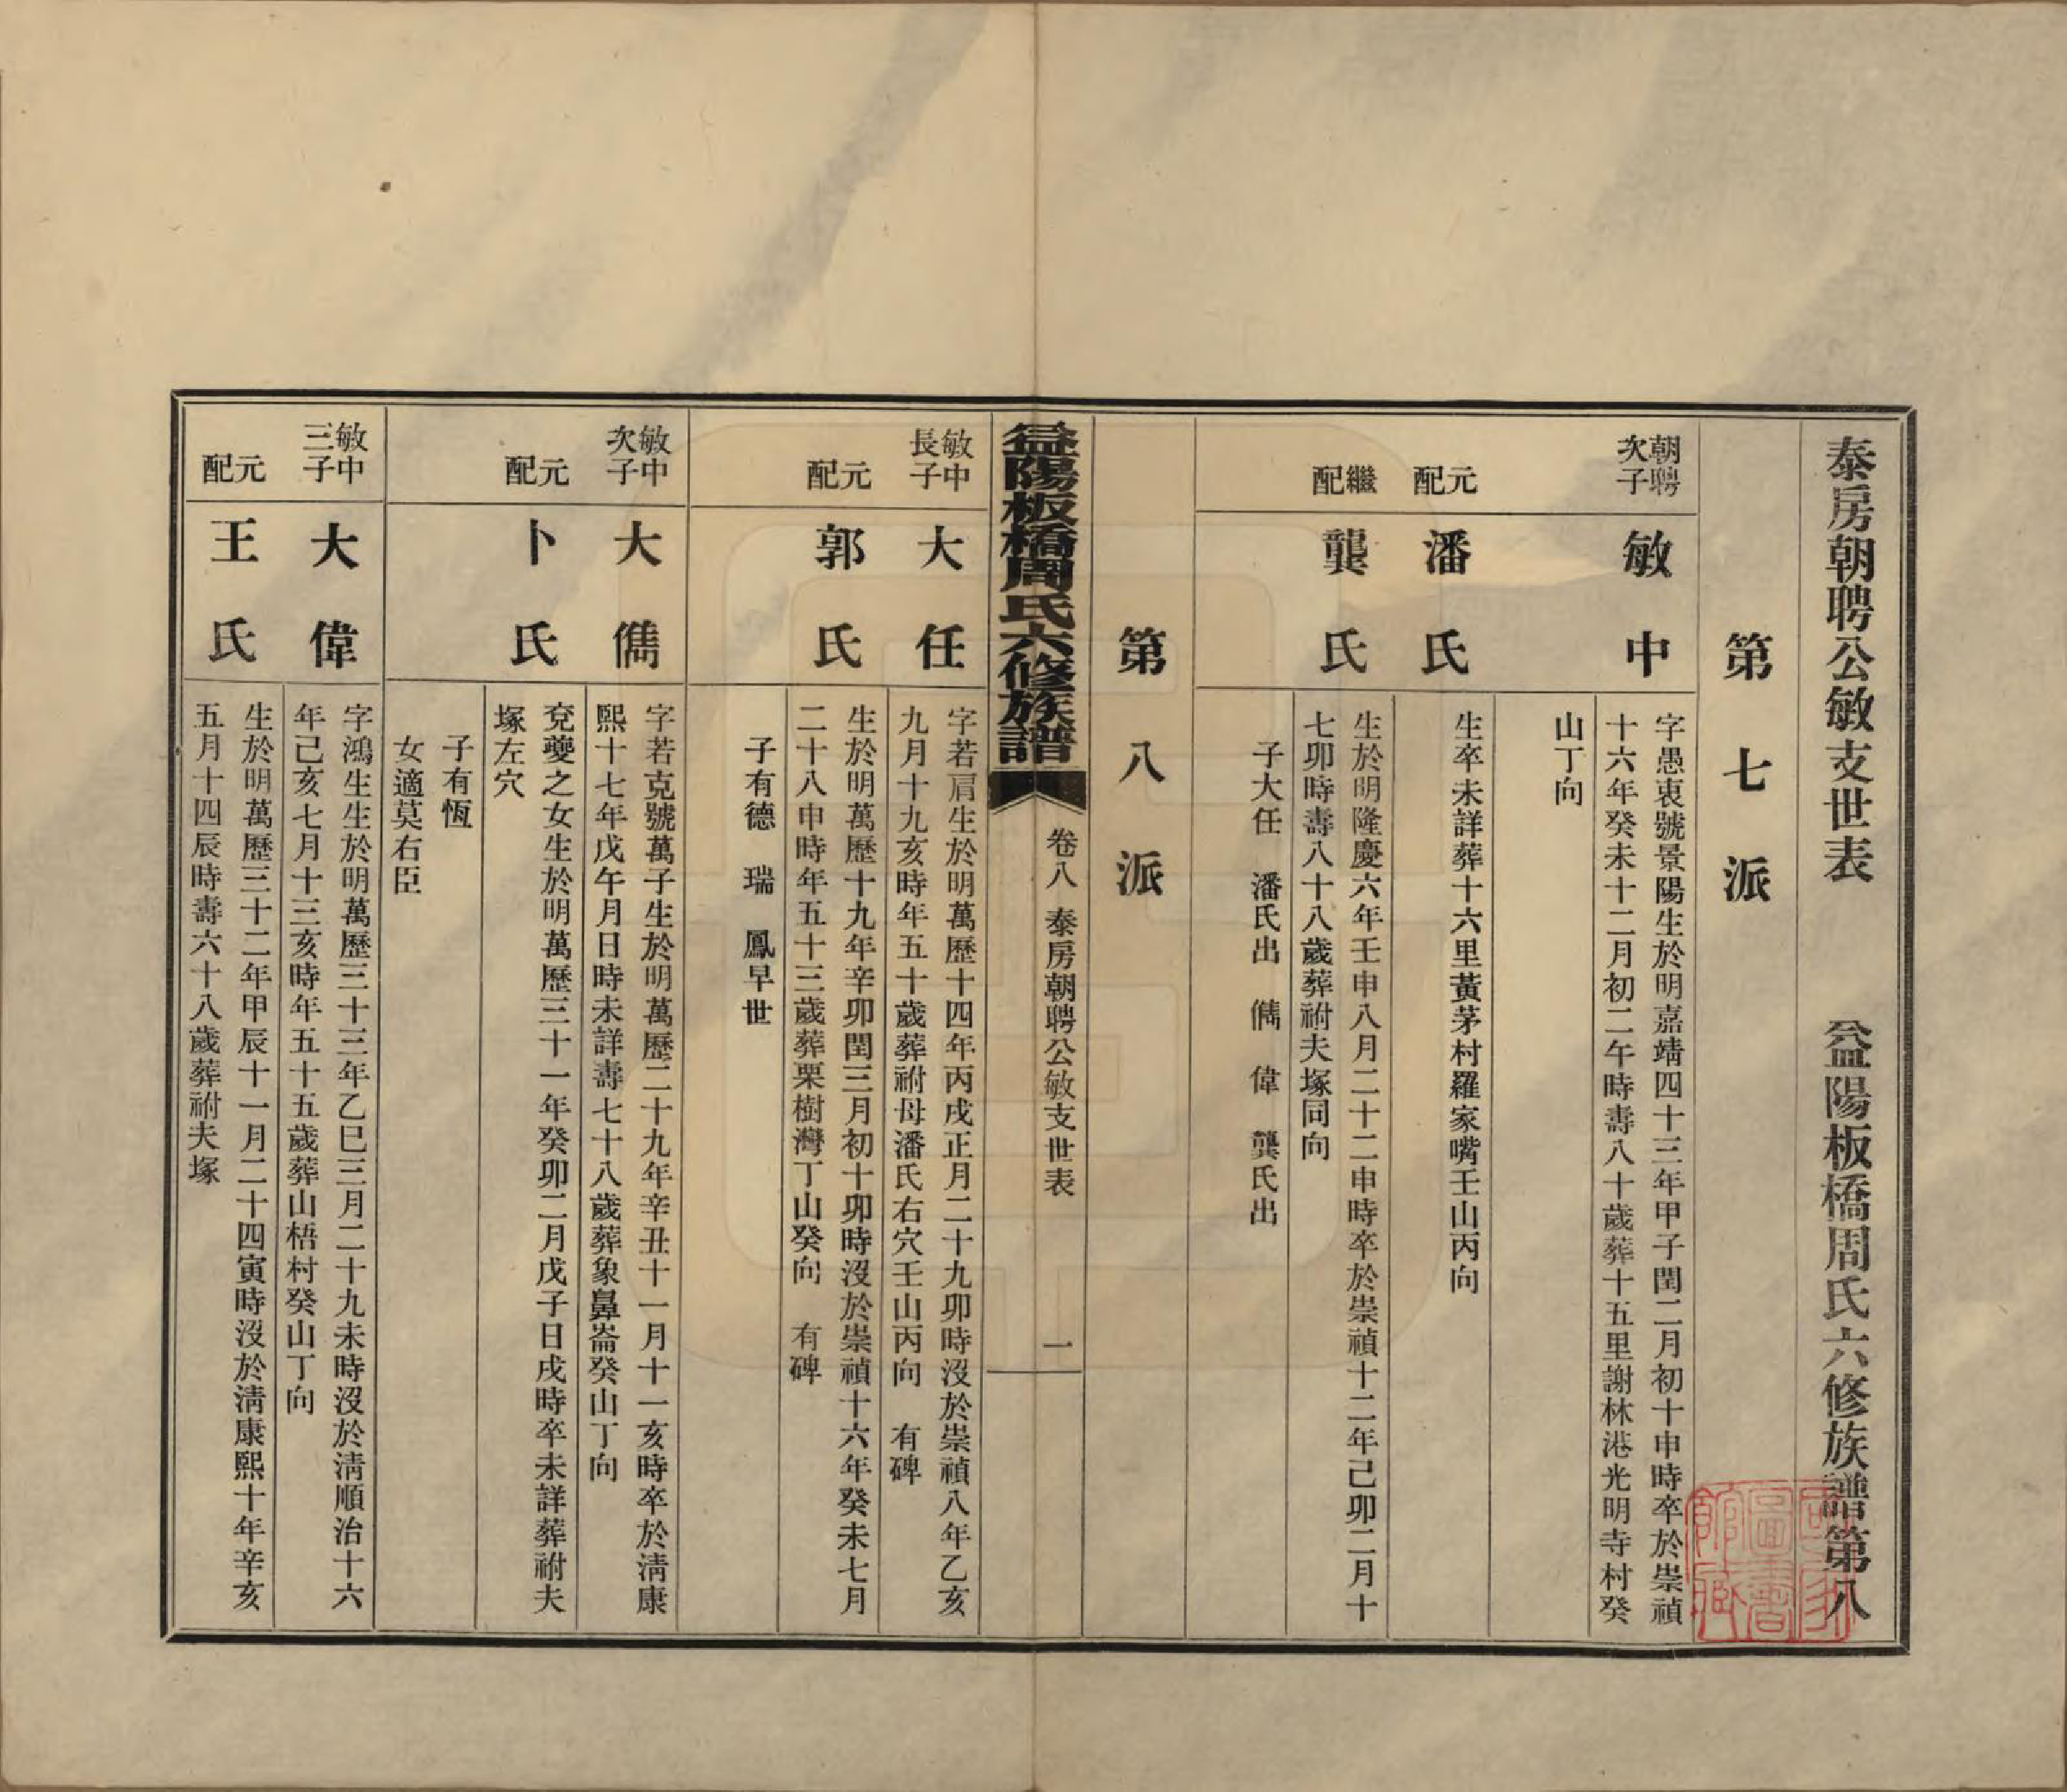 泰房朝聘公敏支世表　益陽板橋周氏六修族譜第八
第七派
朝聘次子
敏中
字愚衷號景陽生於明嘉靖四十三年甲子閏二月初十申時卒於崇禎
十六年癸未十二月初二午時壽八十歲葬十五里謝林港光明寺村癸
山丁向
元配
潘氏
生卒未詳葬十六里黃茅村羅家嘴壬山丙向
繼配
龔氏
生於明隆慶六年壬申八月二十二申時卒於崇禎十二年己卯二月十
七卯時壽八十八歲葬祔夫塚同向
子大任　潘氏出　儁　偉　龔氏出
第八派
益陽板橋周氏六修族譜
卷八　泰房朝聘公敏支世表
一
敏中長子
大任
字若肩生於明萬歷十四年丙戌正月二十九卯時沒於崇禎八年乙亥
九月十九亥時年五十歲葬祔母潘氏右穴壬山丙向　有碑
元配
郭氏
生於明萬歷十九年辛卯閏三月初十卯時沒於崇禎十六年癸未七月
二十八申時年五十三歲葬栗樹灣丁山癸向　有碑
子有德　瑞　鳳早世
敏中次子
大儁
字若克號萬子生於明萬歷二十九年辛丑十一月十一亥時卒於清康
熙十七年戊午月日時未詳壽七十八歲葬象鼻崙癸山丁向
元配
卜氏
兗夔之女生於明萬歷三十一年癸卯二月戊子日戌時卒未詳葬祔夫
塚左穴
子有恆
女適莫右臣
敏中三子
大偉
字鴻生生於明萬歷三十三年乙巳三月二十九未時沒於清順治十六
年己亥七月十三亥時年五十五歲葬山梧村癸山丁向
元配
王氏
生於明萬歷三十二年甲辰十一月二十四寅時沒於清康熙十年辛亥
五月十四辰時壽六十八歲葬祔夫塚
國家圖書館藏